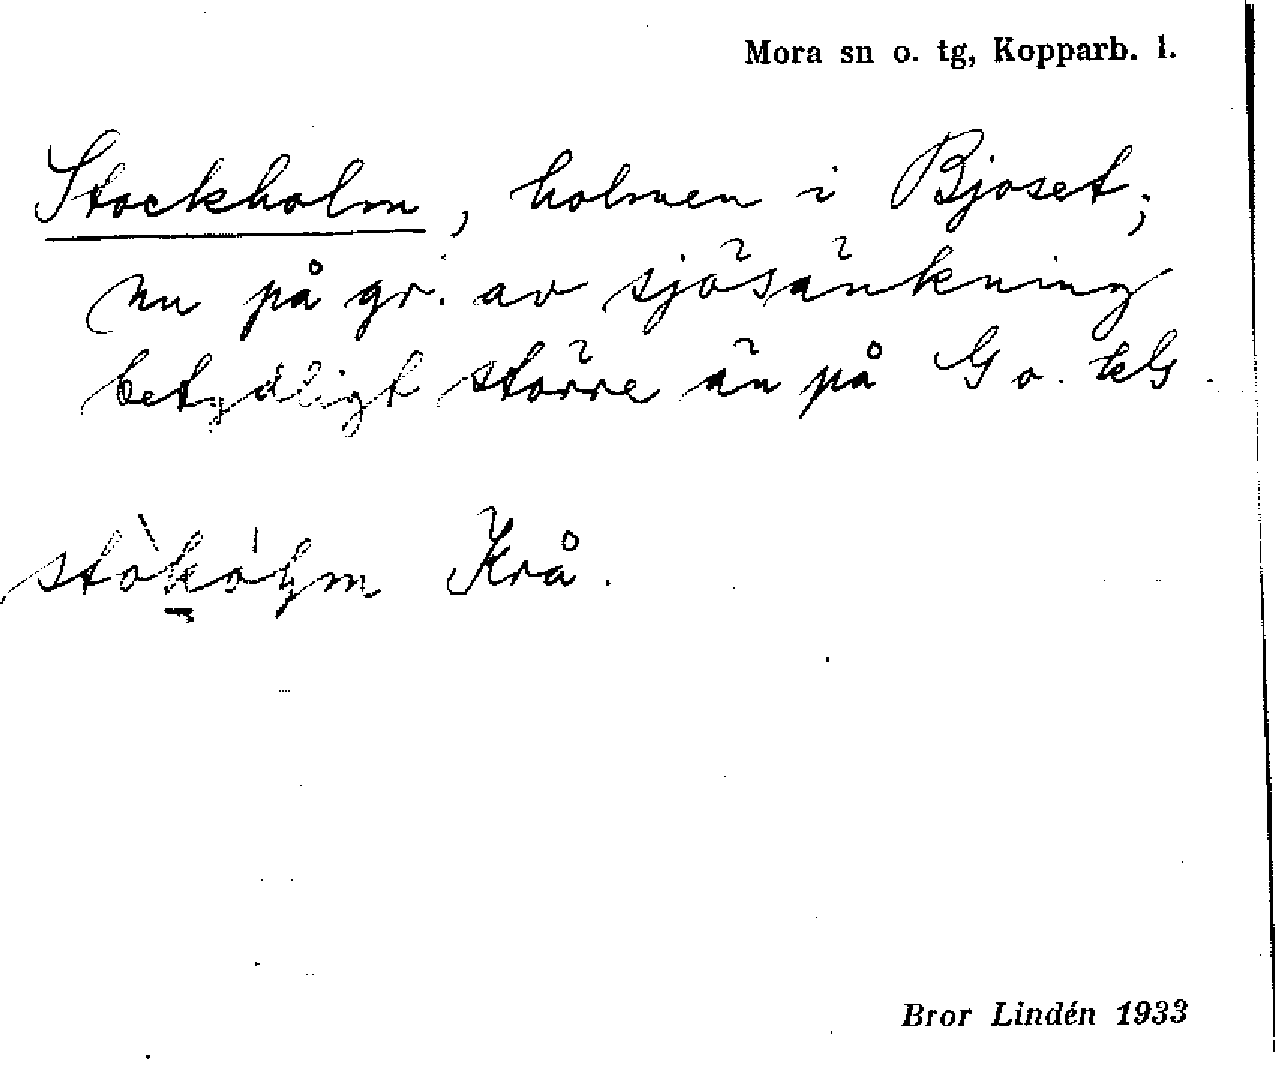 Mora sn o. tg, Kopparb. l.
Stockholm, holmen i Bjoset;
nu på gr. av sjösänkning
betydligt större än på G o. kG.
stòkóļm Krå.
Bror Lindén 1933